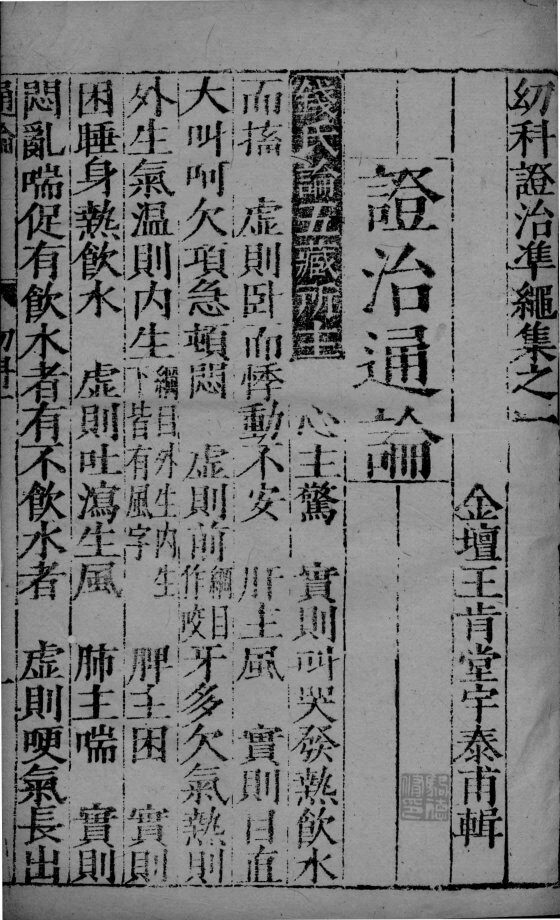 幼科證治準繩集之一
金壇王肯堂宇泰甫輯
證治通論
錢氏論五藏所主 心主驚 實則叫哭發熱飲水
而搐 虛則卧而悸動不安 肝主風 實則目直
大叫呵欠項急頓悶 虛則前綱目作咬牙多欠氣熱則
外生氣温則内生綱目外生内生下皆有風字 脾主困 實則
困睡身熱飲水 虛則吐瀉生風 肺主喘 實則
悶亂喘促有飲水者有不飲水者 虛則哽氣長出
通論